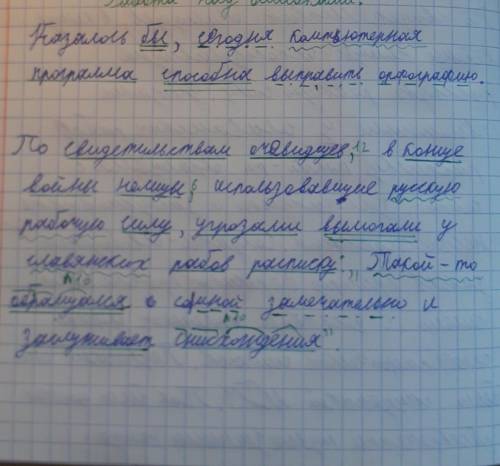 Работа над ошибками.
Казалось бы, сегодня компьютерная
программа способна выправить орфографию.
По свидетельствам очевидцев, 12 в конце
войны немцы, 6 использовавшие русскую
рабочую силу, угрозами вымогали у
славянских рабов расписку: „Такой-то
обращался с Фриной замечательно и
заслуживает снисхождения".